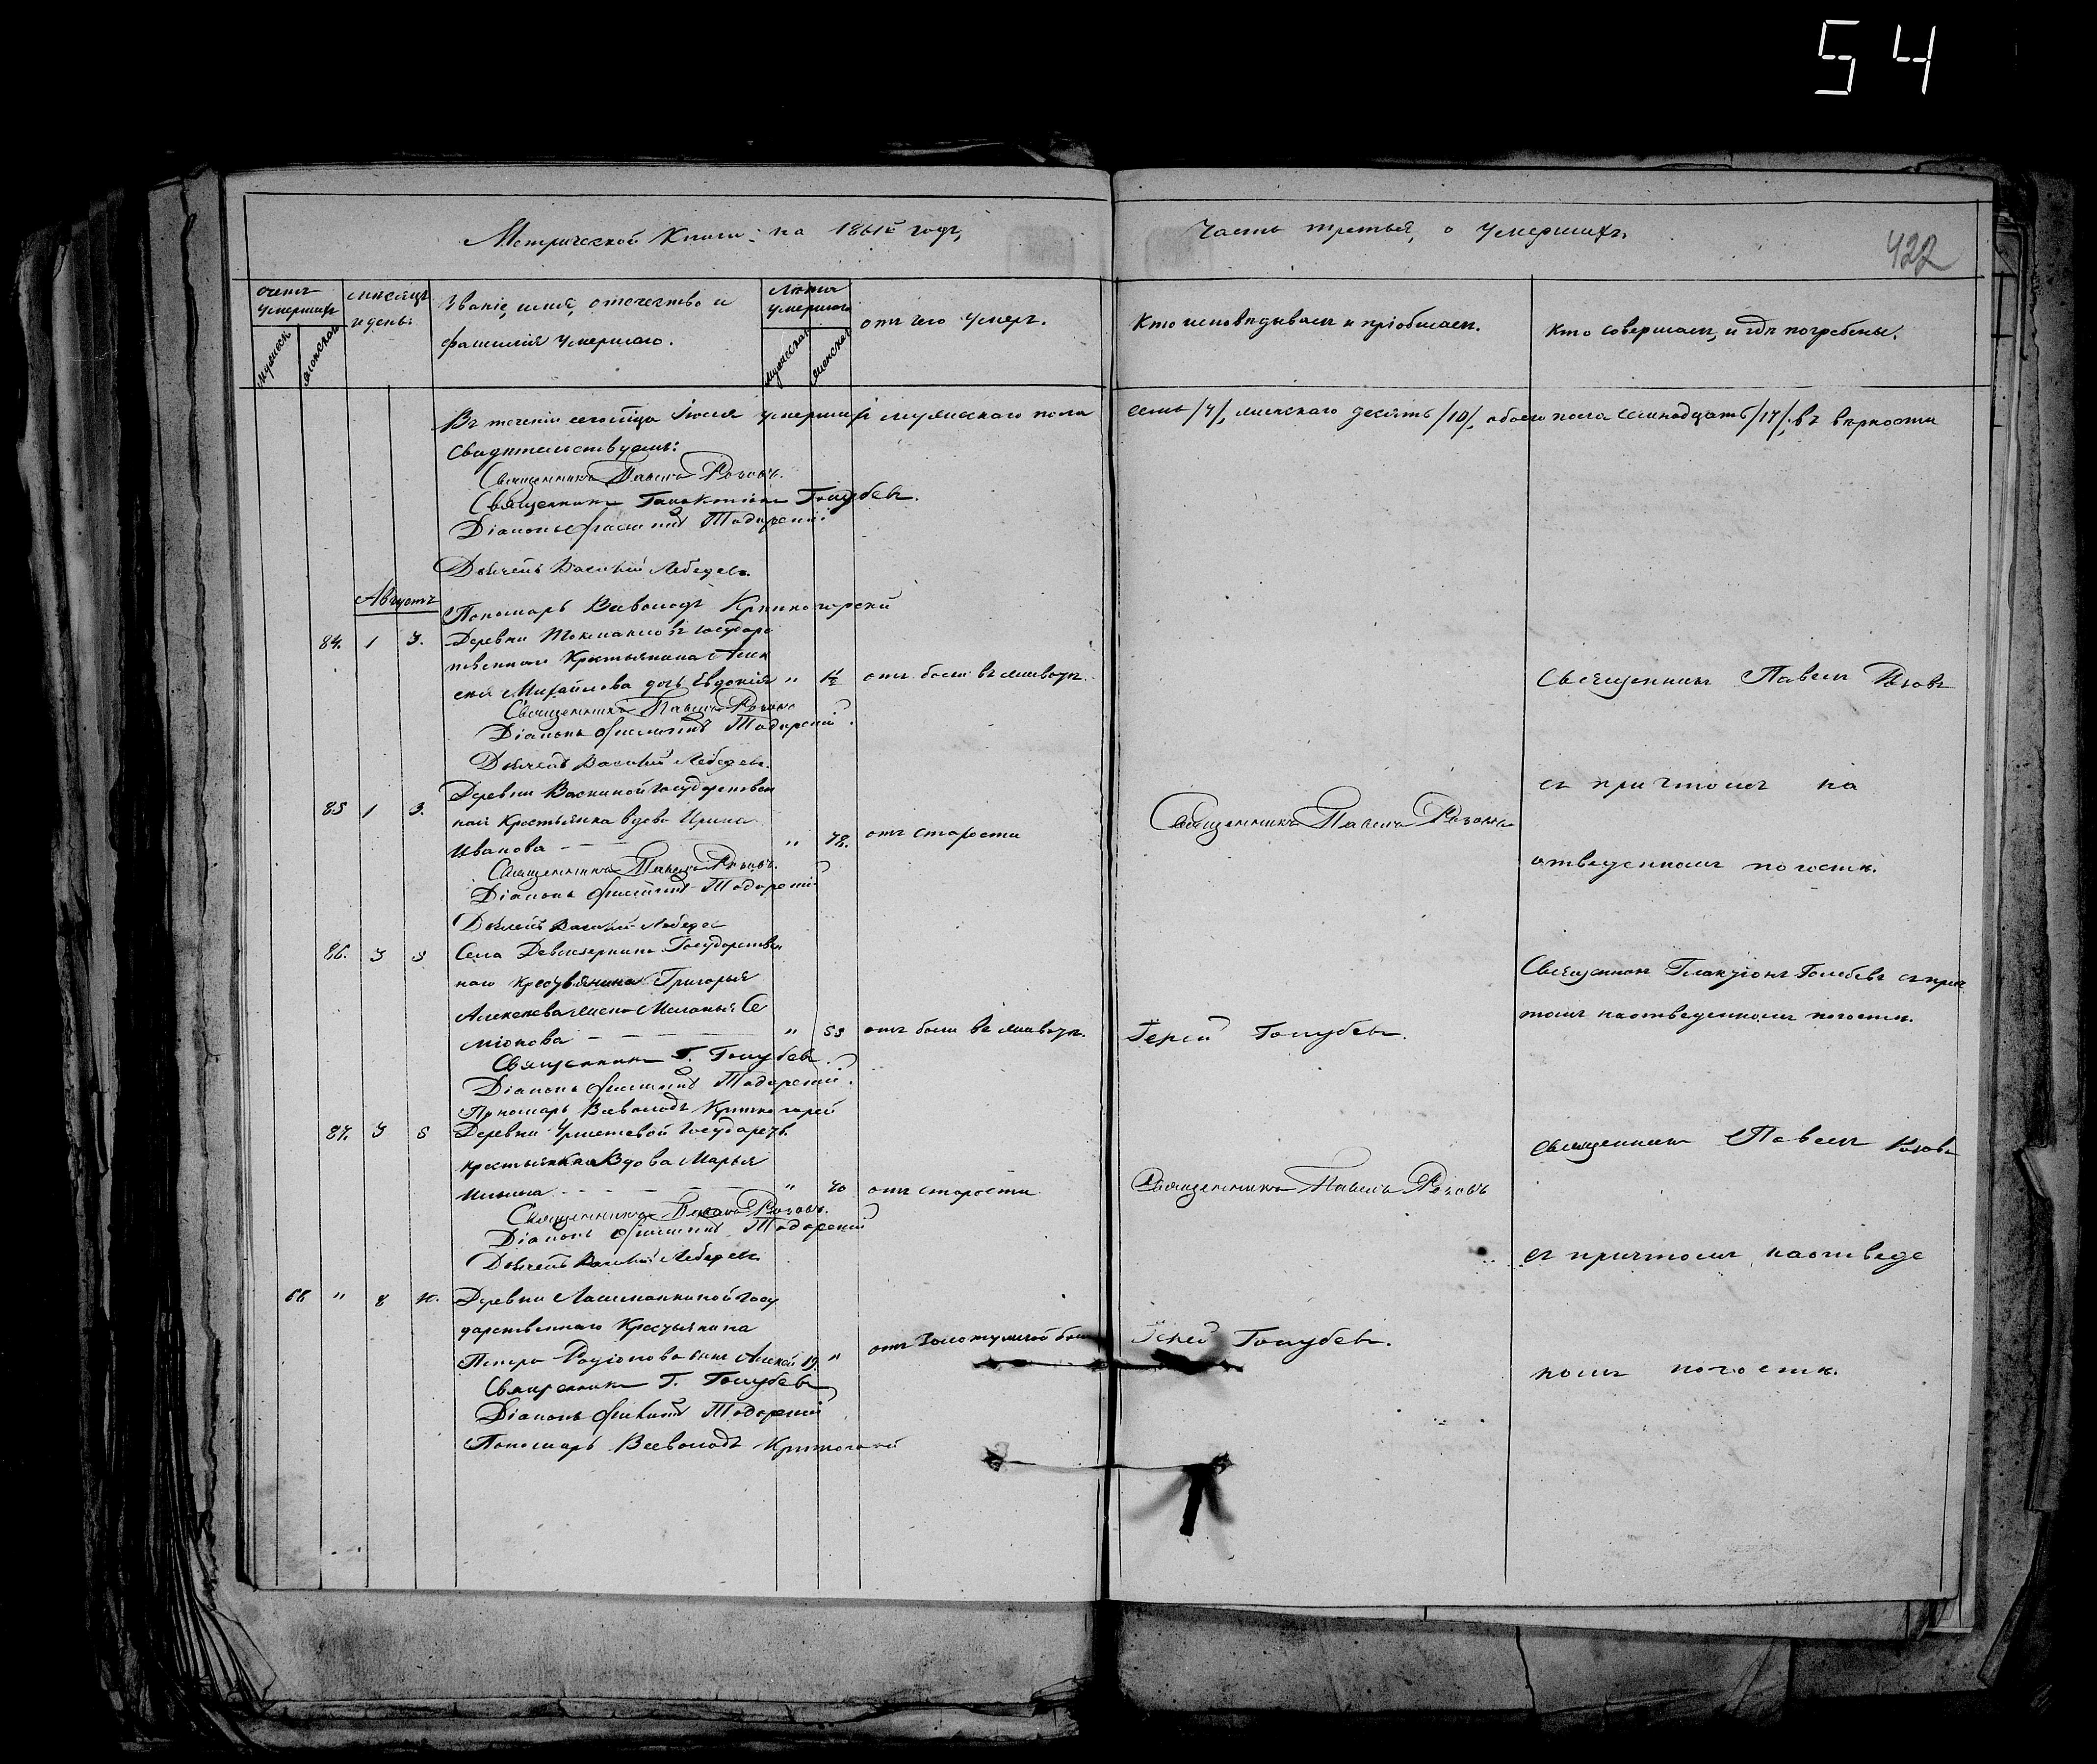 54
Метрической Книги на 1861й годъ,
Часть третья, о умершихъ.
422
счетъ умершихъ
мужеск.
женскаго
мѣсяцъ и день.
Званіе, имя, отечество и фамилія умершаго.
Лѣта умершаго
мужескаго
женскаго
отъ чего умеръ.
Кто исповѣдывалъ и пріобщалъ.
Кто совершалъ, и гдѣ погребены.
Въ теченіи сего мѣсяца Іюля умершихъ мужескаго пола семь /7/, женскаго десять /10/, обоего пола семнадцать /17/, въ вѣрности
свидѣтельствуемъ:
Священникъ Павелъ Розовъ.
Священникъ Галактіонъ Голубевъ.
Діаконъ Тодорскій
Дьячекъ Василій Лебедевъ.
Пономарь Всеволодъ
Августъ
84. 1 3. Деревни государ
ственнаго Крестьянина Алек
сѣя Михайлова дочь Евдокія " 1½ отъ боли въ животѣ.
Священникъ Павелъ Розовъ
Священникъ Павелъ Розовъ
Діаконъ Тодорскій
Дьячекъ Василій Лебедевъ.
съ причтомъ на
85 1 3. Деревни Васкиной государствен
ная Крестьянка вдова Ирина
Иванова " 78. отъ старости
Священникъ Павелъ Розовъ
отведенномъ погостѣ.
Священникъ Павелъ Розовъ.
Діаконъ Тодорскій
Дьячекъ Василій Лебедев
86. 3 5 Села Государствен
наго крестьянина Григорья
Алексѣева жена Меланья Се
мíонова " 53 отъ боли въ животѣ.
Іерей Голубевъ.
Священникъ Голубевъ съ прич
томъ на отведенномъ погостѣ.
Священникъ Г. Голубевъ.
Діаконъ Тодорскій.
Пономарь Всеволодъ
87. 3 5 Деревни государств.
крестьянка Вдова Марья
Ильина " 70 отъ старости
Священникъ Павелъ Розовъ
Священникъ Павелъ Розовъ
Священникъ Павелъ Розовъ.
Діаконъ Тодорскій
Дьячекъ Василій Лебедевъ
съ причтомъ на отведе
68 " 8 10. Деревни Лашманкиной госу
дарственнаго Крестьянина
Петра Родіонова сынъ Алексѣй 19 " отъ золотушной бол
Іерей Голубевъ.
номъ погостѣ.
Священникъ Г. Голубевъ
Діаконъ Тодорскій
Пономарь Всеволодъ